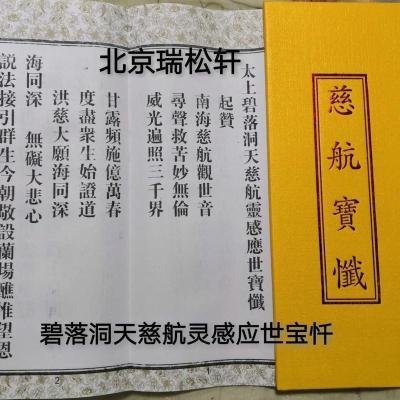 北京瑞松轩
太上碧落洞天慈航靈感應世寶懺
起贊
南海慈航觀世音
尋聲救苦妙無倫
威光遍照三千界
甘露頻施億萬春
度盡衆生始證道
洪慈大願海同深
海同深 無礙大悲心
說法接引群生今朝敬設蘭場醮惟望恩
1
2
慈航寶懺
碧落洞天慈航灵感应世宝忏